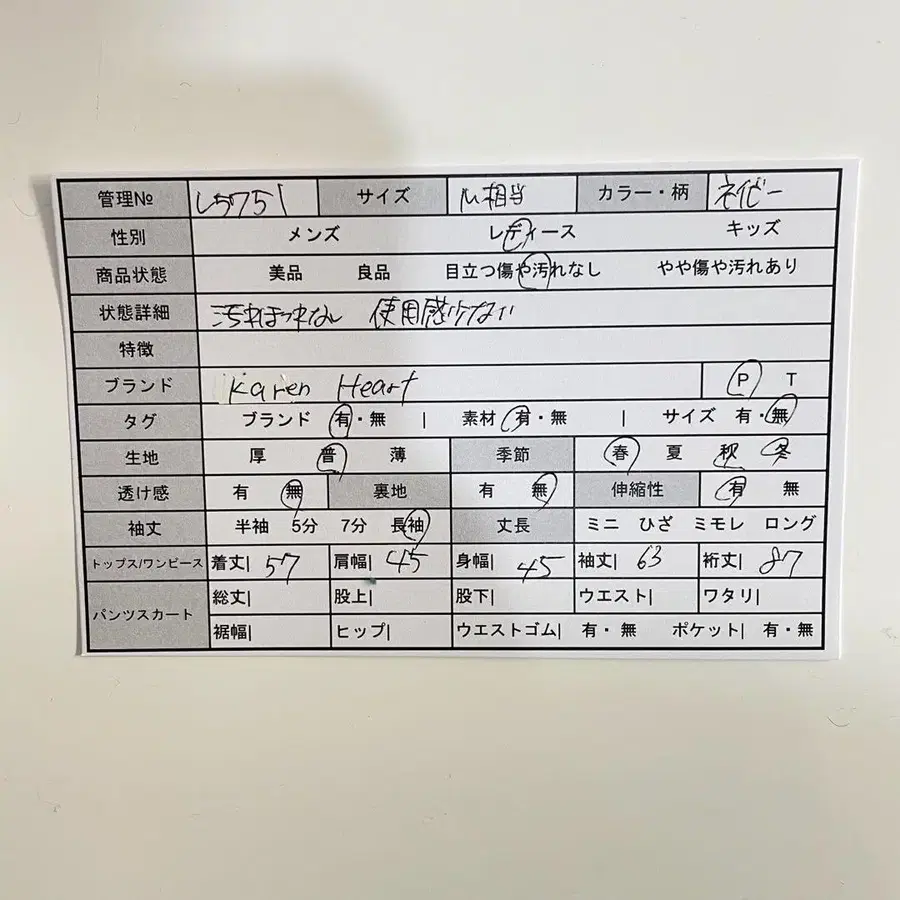 管理№ L5751 サイズ M相当 カラー・柄 ネイビー
性別 メンズ レディース キッズ
商品状態 美品 良品 目立つ傷や汚れなし やや傷や汚れあり
状態詳細 汚れほつれなし 使用感少ない
特徴
ブランド Karen Heart P T
タグ ブランド 有・無 | 素材 有・無 | サイズ 有・無
生地 厚 普 薄 季節 春 夏 秋 冬
透け感 有 無 裏地 有 無 伸縮性 有 無
袖丈 半袖 5分 7分 長袖 丈長 ミニ ひざ ミモレ ロング
トップス/ワンピース 着丈| 57 肩幅| 45 身幅| 45 袖丈| 63 裄丈| 87
パンツスカート 総丈| 股上| 股下| ウエスト| ワタリ|
裾幅| ヒップ| ウエストゴム| 有・無 ポケット| 有・無